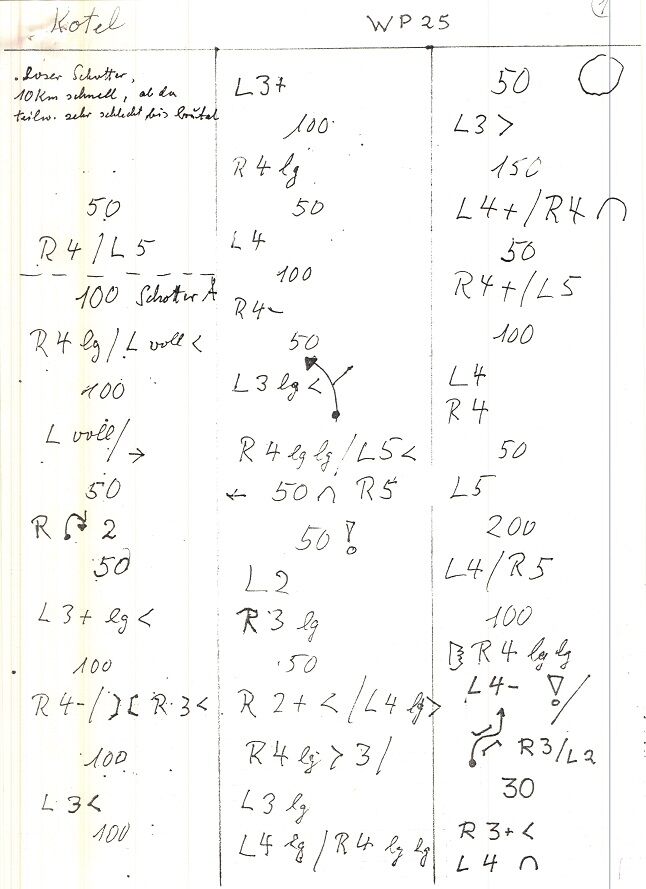 Kotel WP 25 1
. Loser Schotter,
10 Km schnell, ab da
teilw. sehr schlecht bis brutal
50
R 4 / L 5
100 Schotter A
R 4 lg / L voll <
100
L voll / →
50
R 2
50
L 3 + lg <
100
R 4 - / ][ R 3 <
100
L 3 <
100
L 3 +
100
R 4 lg
50
L 4
100
R 4 -
50
L 3 lg <
R 4 lg lg / L 5 <
← 50 ∩ R 5
50 !
L 2
R 3 lg
50
R 2 + < / L 4 lg >
R 4 lg > 3 /
L 3 lg
L 4 lg / R 4 lg lg
50
L 3 >
150
L 4 + / R 4 ∩
50
R 4 + / L 5
100
L 4
R 4
50
L 5
200
L 4 / R 5
100
R 4 lg lg
L 4 - ! /
R 3 / L 2
30
R 3 + <
L 4 ∩